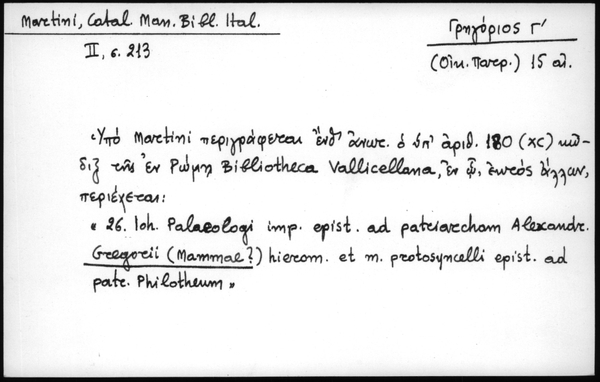 Martini, Catal. Man. Bibl. Ital.
II, σ. 213
Γρηγόριος Γ'
(Οἰκ. Πατρ.) 15 αἰ.
«Ὑπό Martini περιγράφεται ἔνθ' ἀνωτ. ὁ ὑπ' ἀριθ. 180 (XC) κῶ-
διξ τῆς ἐν Ρώμῃ Bibliotheca Vallicellana, ἐν ᾧ, ἐκτός ἄλλων,
περιέχεται:
« 26. Ioh. Palaeologi imp. epist. ad patriarcham Alexandr.
Gregorii (Mammae?) hierom. et m. protosyncelli epist. ad
patr. Philotheum »